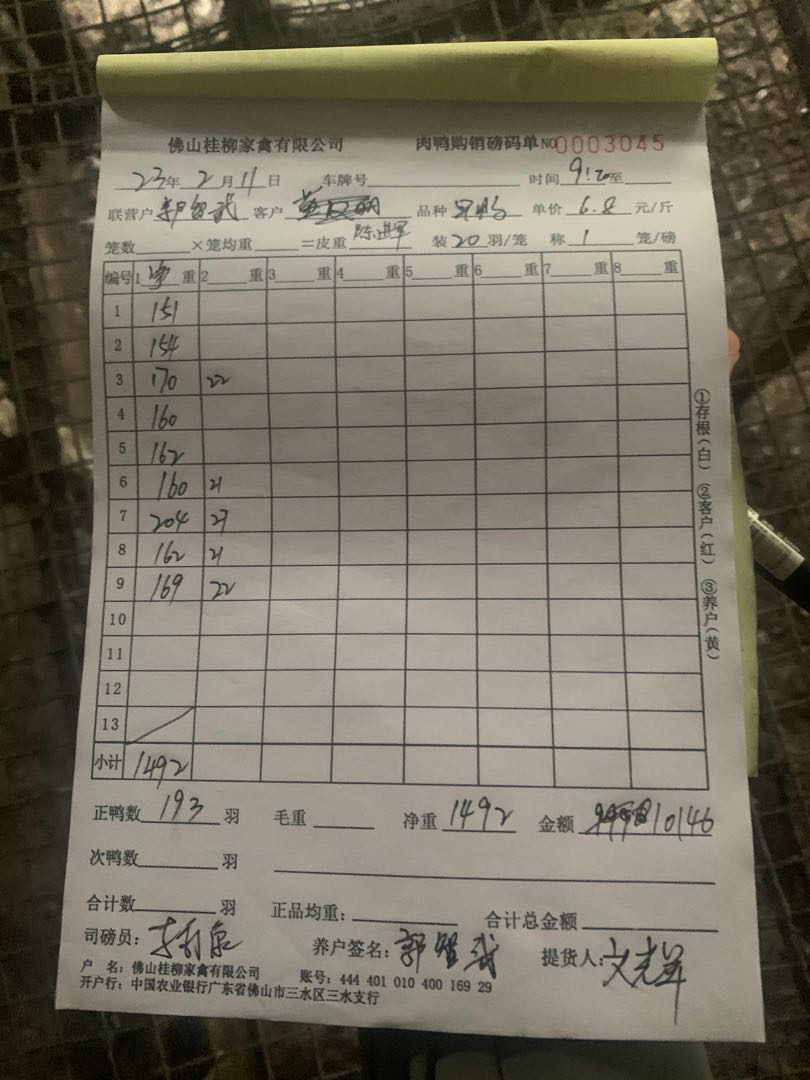 佛山桂柳家禽有限公司 肉鸭购销磅码单 NO 0003045
23年 2月 11日 车牌号 时间 9:20至
联营户 郭智武 客户 品种 单价 6.8 元/斤
笼数 ×笼均重 =皮重 陈进军 装20羽/笼 称 1 笼/磅
编号 1 净 重 2 重 3 重 4 重 5 重 6 重 7 重 8 重
1 151
2 154
3 170 22
4 160
5 162
6 160 21
7 204 27
8 162 21
9 169 22
10
11
12
13
小计 1492
正鸭数 193 羽 毛重 净重 1492 金额 10146
次鸭数 羽
合计数 羽 正品均重: 合计总金额
司磅员: 养户签名: 郭智武 提货人:
户 名: 佛山桂柳家禽有限公司 账号: 444 401 010 400 169 29
开户行: 中国农业银行广东省佛山市三水区三水支行
①存根(白) ②客户(红) ③养户(黄)